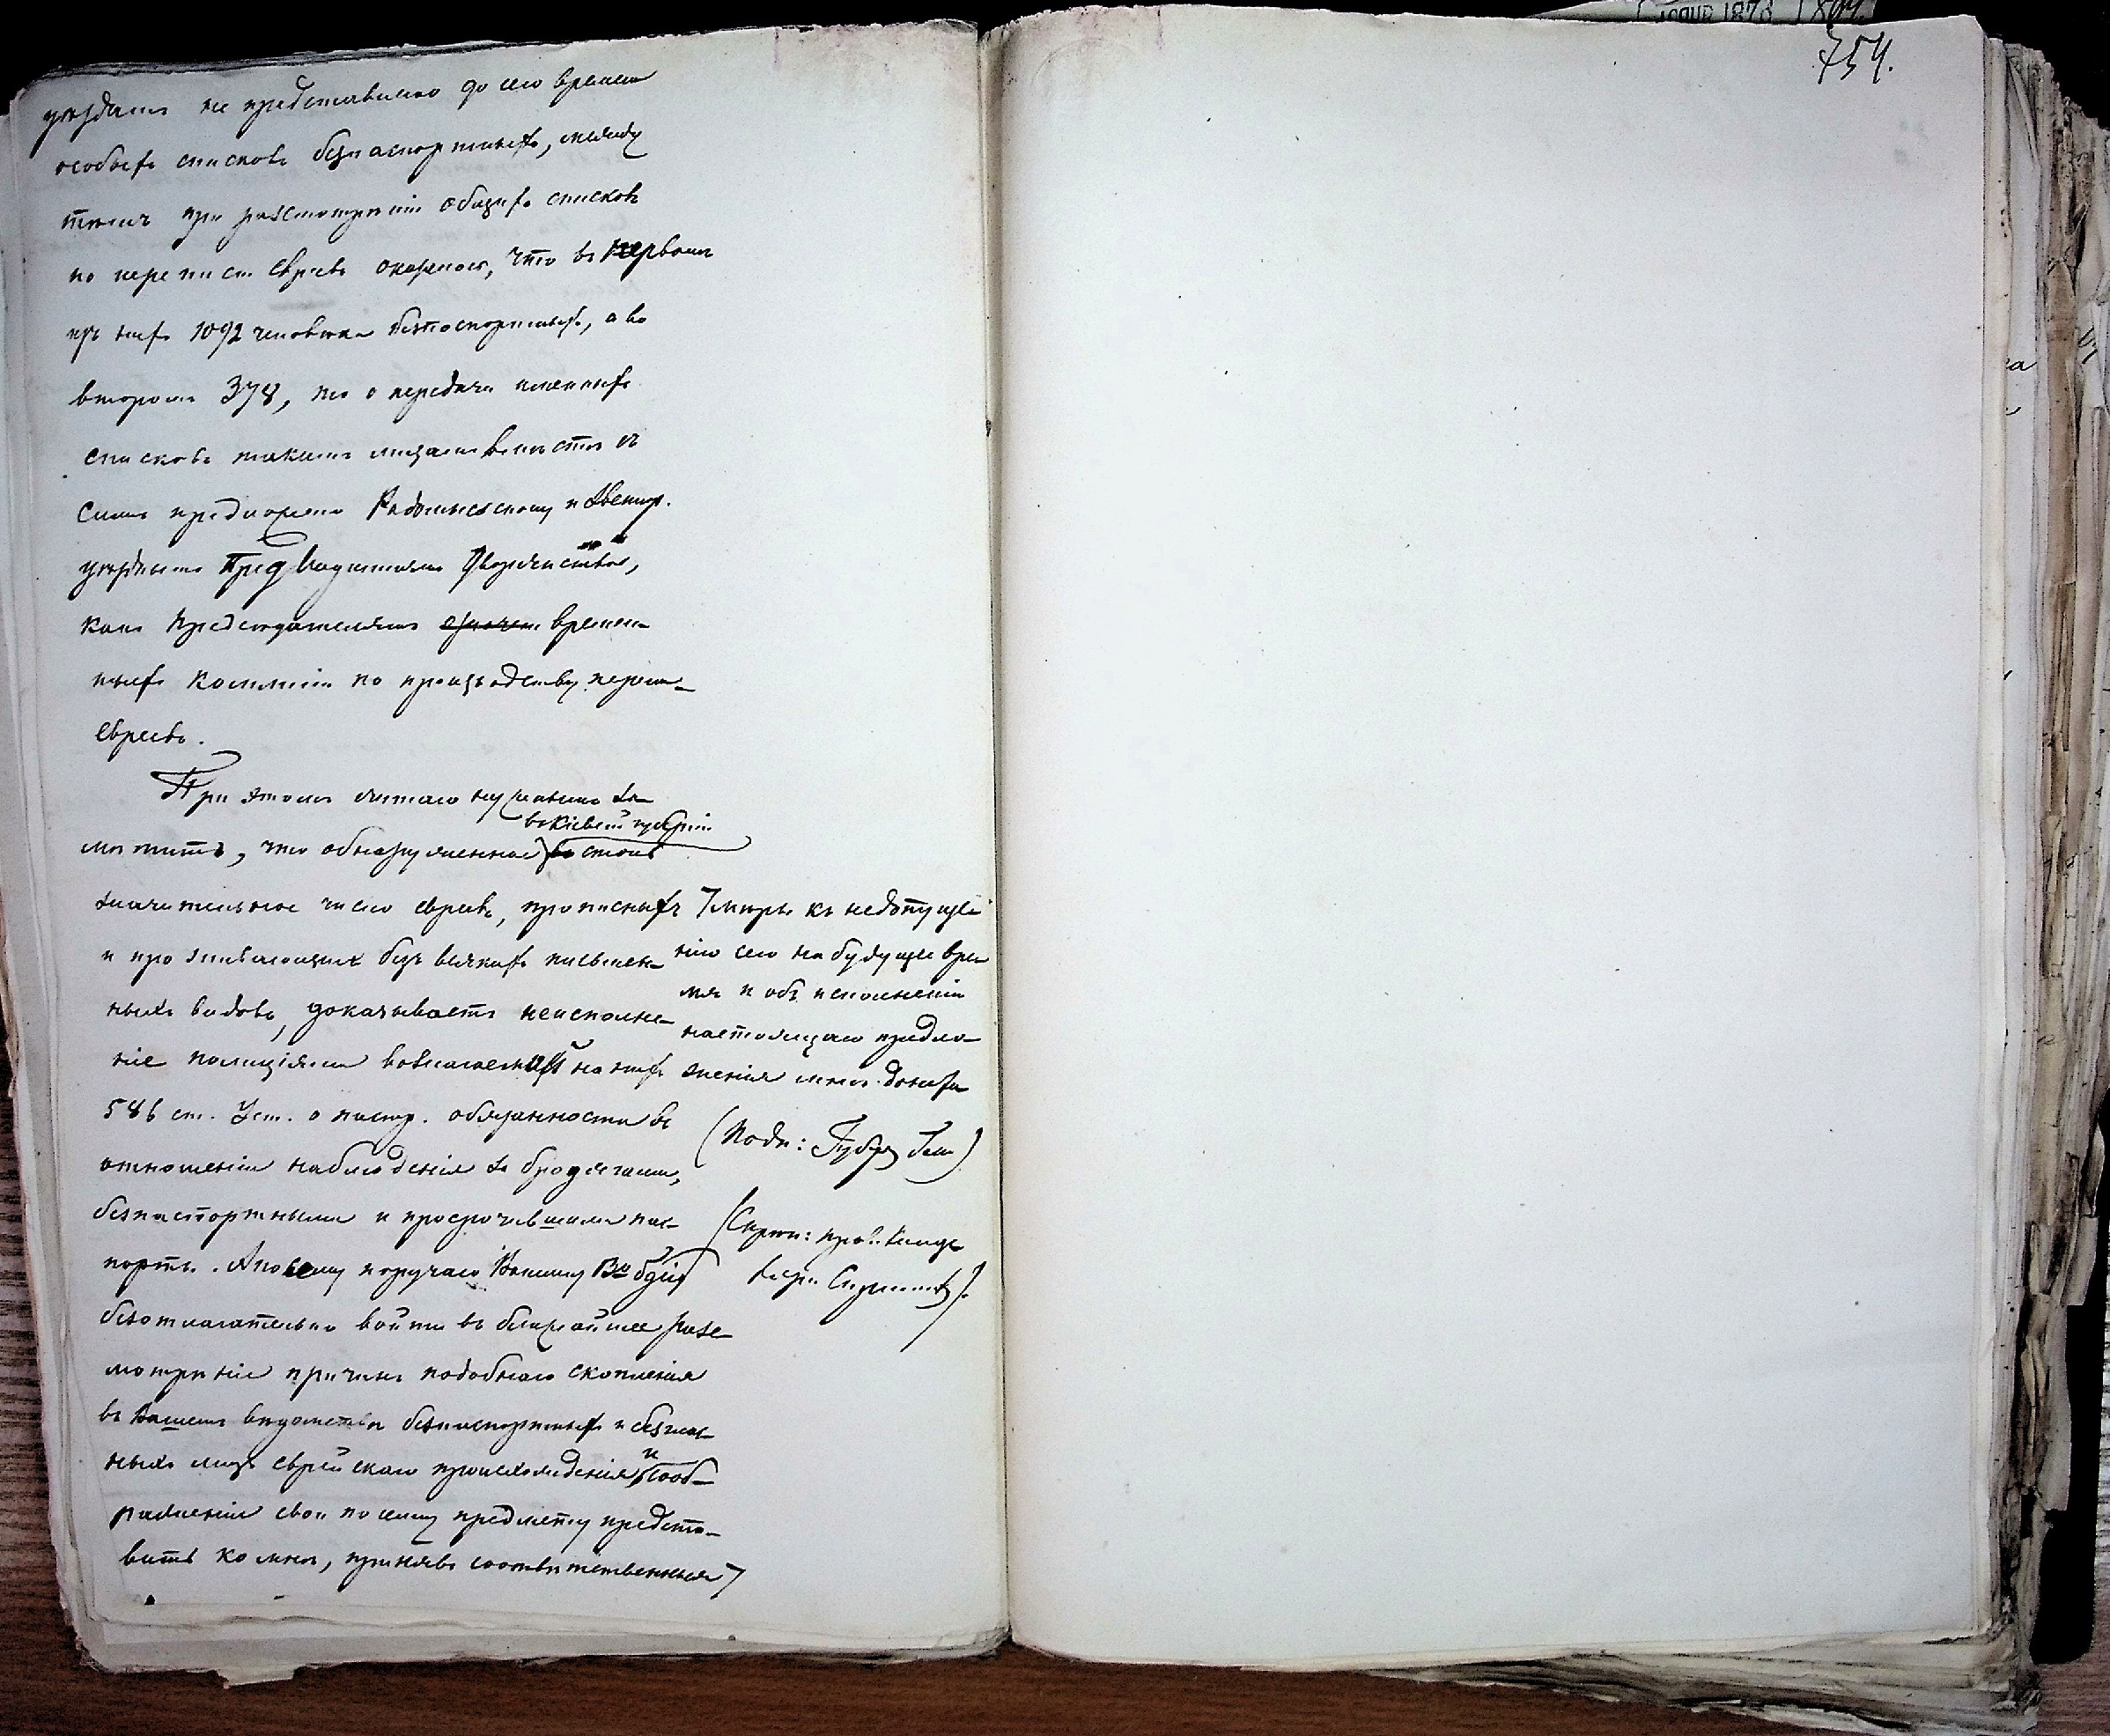 754.
уѣздамъ не представлено до сего времени
особыхъ списковъ безпаспортныхъ, между
тѣмъ при разсмотрѣніи общихъ списковъ
по переписи евреевъ оказалось, что въ первомъ
изъ нихъ 1092 человѣка безпаспортныхъ, а во
второмъ 378, то о передачи именныхъ
списковъ такимъ лицамъ вмѣстѣ съ
симъ предложено Радомысльскому и Звениг.
уѣзднымъ Предводителямъ Дворянства,
какъ Предсѣдателямъ времен-
ныхъ Коммисій по производству переписи
евреевъ.
При этомъ считаю нужнымъ за-
въ Кіевской губерніи
мѣтить, что обнаруженное столь
значительное число евреевъ, прописныхъ
и проживающихъ безъ всякихъ письмен-
ныхъ видовъ, доказываетъ неисполне-
ніе полиціями возлагаемыхъ на нихъ
586 ст. Уст. о паспр. обязанности въ
отношеніи наблюденія за бродягами,
безпаспортными и просрочившими пас-
порты. А посему поручаю Вашему Вю
безотлагательно войти въ ближайшее разс-
мотрѣніе причинъ подобнаго скопленія
въ Вашемъ вѣдомствѣ безпаспортныхъ и безглас-
ныхъ лицъ еврейскаго происхожденія и сооб-
раженія свои по сему предмету предста-
вить ко мнѣ, принявъ соотвѣтственныя
мѣры къ недопуще-
нію сего на будущее вре-
мя и объ исполненіи
настоящаго предло-
женія мнѣ донести
(Подп: Губерн
(Скрѣп: прав. Канце